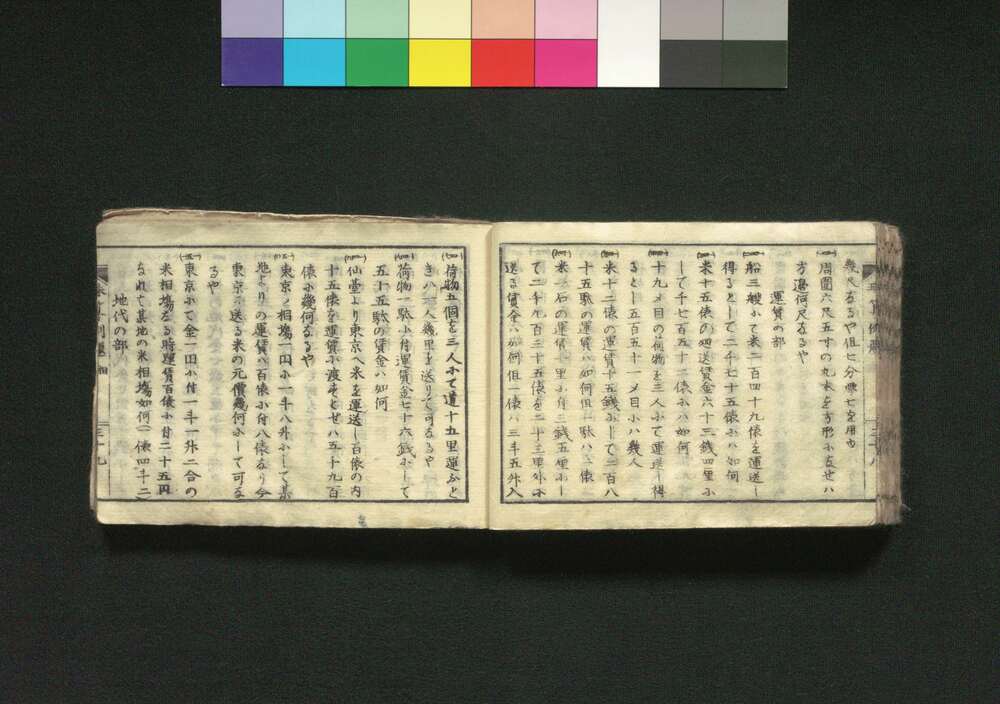 幾尺なるや但七分無七を用由
周圍六尺五寸の丸木を方形小なせハ
方邊何尺なるや
運賃の部
船三艘小て米二百四十九俵を運送し
得るとして二千七十五俵小ハ如何
米十五俵の運送賃金六十三銭四里小
して千七百五十二俵小ハ如何
十九〆目の荷物を三人小て運送し得
るとし五百五十一〆目小ハ幾人
米十二俵の運賃十五銭小して二百八
十五駄の運賃ハ如何但一駄ハ二俵
米一石の運賃一里小付三銭五厘小し
て二千九百三十五俵を二十三里外小
送る賃金ハ如何但一俵ハ三斗五升入
荷物五個を三人小て道十五里運ぶと
きハ一人幾里を送りて可なるや
荷物一駄小付運賃金七十六銭小して
五十五駄の賃金ハ如何
仙臺より東京へ米を運送し百俵の内
十五俵を運賃小渡すとせハ五十九百
俵小幾何なるや
東京ノ相場一円小一斗八升小して某
地よりの運賃ハ百俵小付八俵なり今
東京小送る米の元價幾何小して可な
るや
東京小て金一円小付一斗一升二合の
米相場なる時運賃百俵小付二十五円
なれて某地の米相場如何一俵四斗二
地代の部
三十九